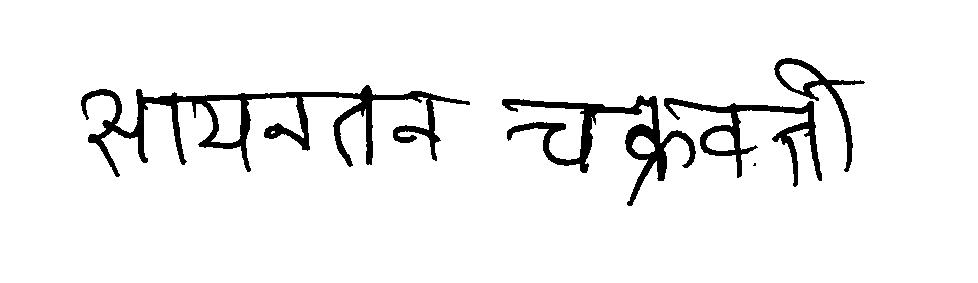 सायनतन चक्रवत्ती